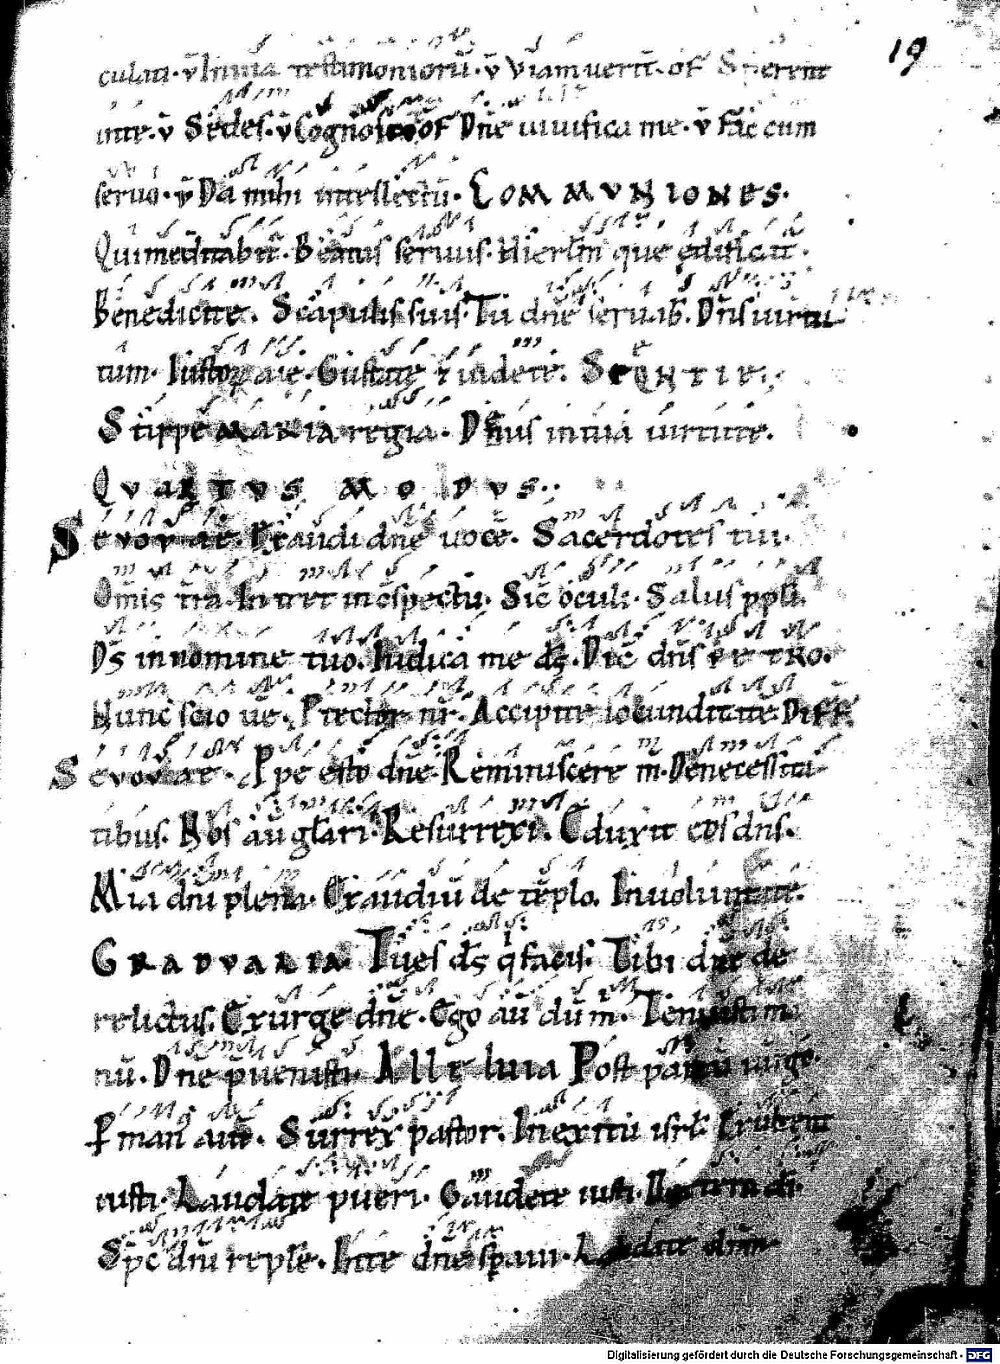 19
culati. v̄ In uia testimonioru̅. v̄ Viam uerit̅. of Sperent
in te. v̄ Sedes. v̄ Cogn̄o of Dn̄e uiuifica me. v̄ Fac cum
seruo. v̄ Da mihi intellectu̅. COMMVNIONES.
Qui meditabit̅. Beatus seruus. Hierlm̅ que edificat̅.
Benedicite. Scapulis suis. Tu dn̄e seruab̅. Dn̄s uirtu
tum. Iustoꝝ aīe. Gustate & uidete. SEQNTIE.
Stirpe MARIA regia. Dn̄us in tua uirtute.
QVARTVS MODVS.
Seuouae. Exaudi dn̄e uoce̅. Sacerdotes tui.
Om̅is tr̅a. Intret in c̅spectu̅. Sic̅ oculi. Salus pp̅li.
Ds̅ in nomine tuo. Iudica me ds̅. Dic̅ dn̄s PETRO.
Nunc scio ue̅. Ptector nr̅. Accipite iocunditate̅. DIFF.
Seuouae. Ppe esto dn̄e. Reminiscere m̅. De necessita
tibus. Nos au̅ gl̅ari. Resurrexi. Eduxit eos dn̄s.
Mia dn̄i plena. Exaudiu̅ de te̅plo. In uoluntate.
GRADVALIA. Tu es ds̅ q̅ facis. Tibi dn̄e de
relictus. Exurge dn̄e. Ego au̅ du̅ m̅. Tenuisti ma
nu̅. Dn̄e p̅uenisti. Alleluia Post partu̅ uirgo.
P man̅ aut̅. Surrex̅ pastor. In exitu isrl̅.
iusti. Laudate pueri. Gaudete iusti.
Sp̅c dn̄i reple. In te dn̄e sp̅aui. Laudate dn̄m
Digitalisierung gefördert durch die Deutsche Forschungsgemeinschaft - DFG